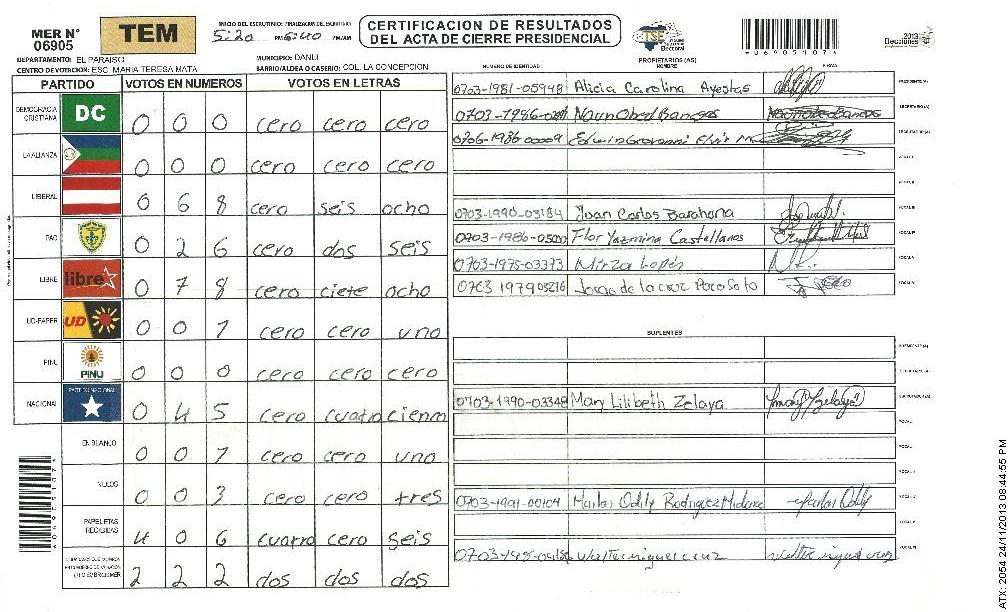 MER Nº
06905
TEM
INICIO DEL ESCRUTINIO: FINALIZACION DEL ESCRUTINIO
5:20 PM 6:40 PM/AM
CERTIFICACION DE RESULTADOS
DEL ACTA DE CIERRE PRESIDENCIAL
TSE Tribunal Supremo Electoral
069051074
2013
Elecciones
DEPARTAMENTO: EL PARAISO
MUNICIPIO: DANLI
CENTRO DE VOTACION: ESC. MARIA TERESA MATA
BARRIO/ALDEA O CASERIO: COL. LA CONCEPCION
PROPIETARIOS (AS)
NUMERO DE IDENTIDAD NOMBRE FIRMA
PARTIDO VOTOS EN NUMEROS VOTOS EN LETRAS
DEMOCRACIA CRISTIANA DC 0 0 0 cero cero cero
LA ALIANZA 0 0 0 cero cero cero
LIBERAL 0 6 8 cero seis ocho
PAC 0 2 6 cero dos seis
LIBRE libre 0 7 8 cero ciete ocho
UD-FAPER UD 0 0 1 cero cero uno
PINU PINU 0 0 0 cero cero cero
NACIONAL PARTIDO NACIONAL 0 4 5 cero cuatro cienco
EN BLANCO 0 0 1 cero cero uno
NULOS 0 0 3 cero cero tres
PAPELETAS RECIBIDAS 4 0 6 cuatro cero seis
2 2 2 dos dos dos
0703-1981-05948 Alicia Carolina Ayestas PRESIDENTE(A)
0703-1986- Naun Obed Banegas SECRETARIO(A)
0706-1986-00009 Edwin Geovanni ESCRUTADOR(A)
VOCAL I
VOCAL II
0703-1990-03184 Juan Carlos Barahona
0703-1986-05000 Flor Yazmina Castellanos
0703-1975-03373 Mirza Lopez
0703 1979 03216 Jorge de la cruz Poco Soto
SUPLENTES
PRESIDENTE (A)
SECRETARIO(A)
0703-1990-03348 Mary Lilibeth Zelaya ESCRUTADOR(A)
VOCAL
0703-1991-00104 Marlos Odily Rodriguez
069051074
ATX: 2054 24/11/2013 08:44:55 PM